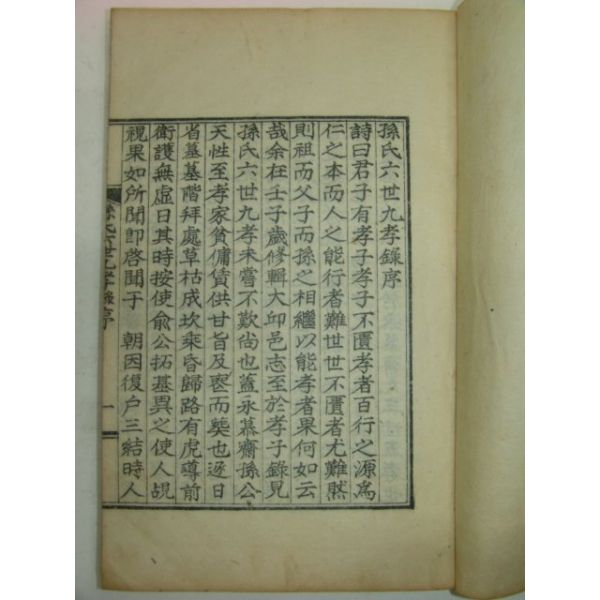 孫氏六世九孝錄序
詩曰君子有孝子孝子不匱孝者百行之源爲
仁之本而人之能行者難世世不匱者尤難然
則祖而父子而孫之相繼以能孝者果何如云
哉余在壬子歲修輯大邱邑志至於孝子錄見
孫氏六世九孝未嘗不歎尙也蓋永慕齋孫公
天性至孝家貧傭賃供甘旨及喪而葬也逐日
省墓墓階拜處草枯成坎乘昏歸路有虎導前
衛護無虛日其時按使兪公拓基異之使人覘
視果如所聞卽啓聞于 朝因復户三結時人
孫氏六世九孝錄序
一